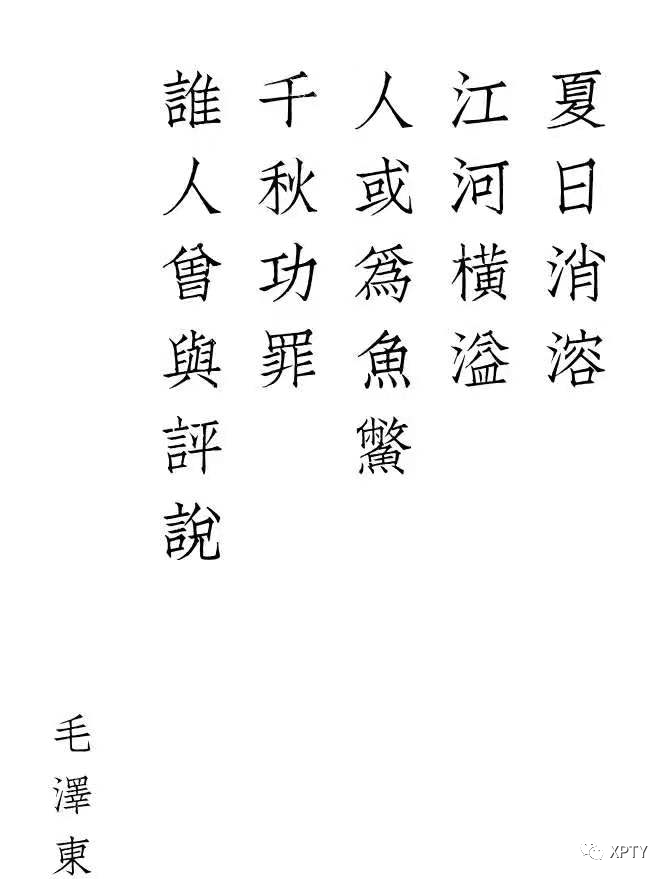 夏日消溶
江河橫溢
人或爲魚鱉
千秋功罪
誰人曾與評說
毛澤東
XPTY